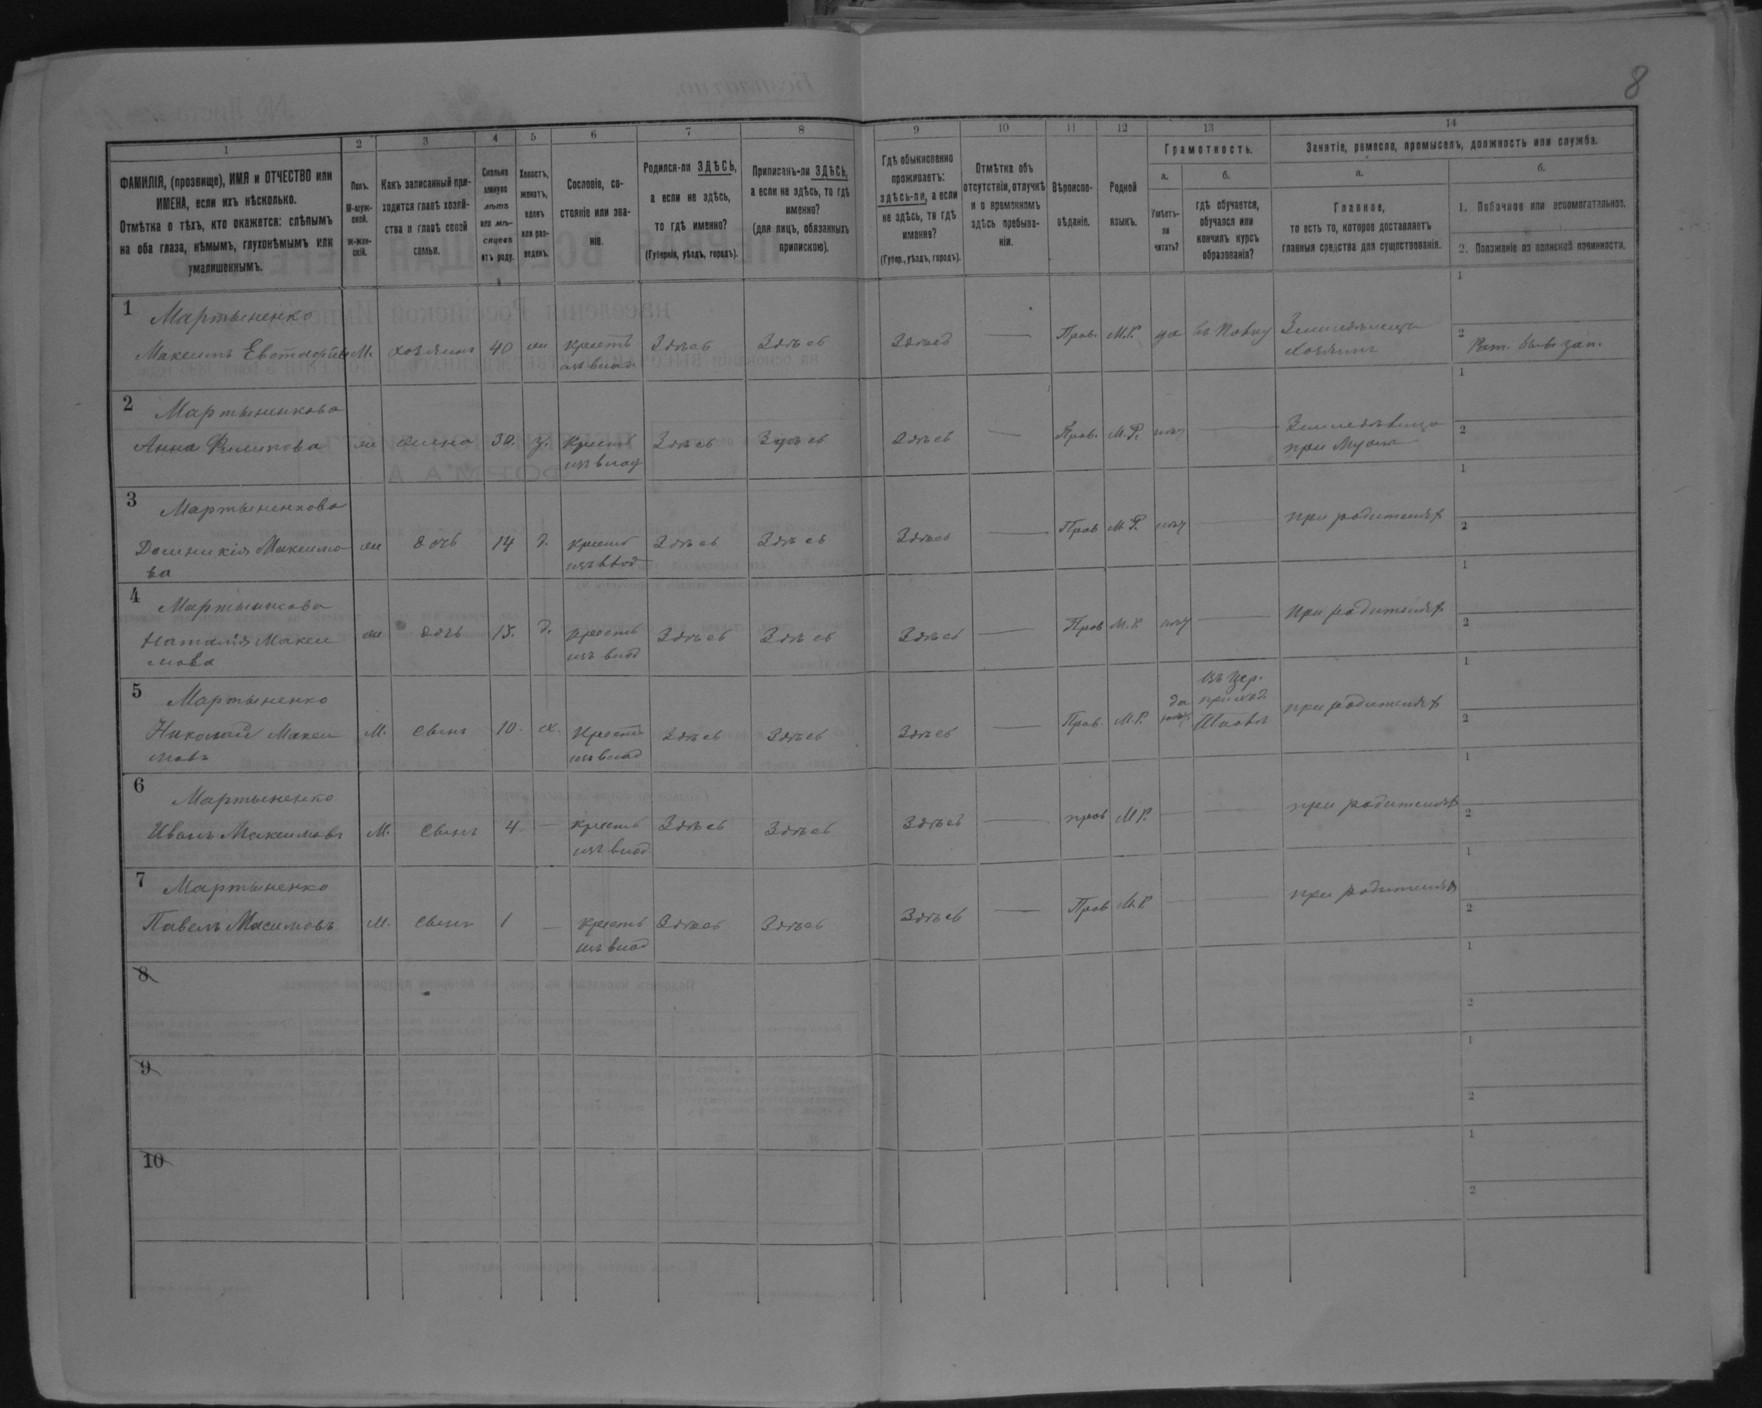 8
1 2 3 4 5 6 7 8 9 10 11 12 13 14
ФАМИЛІЯ, (прозвище), ИМЯ и ОТЧЕСТВО или
ИМЕНА, если ихъ нѣсколько.
Отмѣтка о тѣхъ, кто окажется: слѣпымъ
на оба глаза, нѣмымъ, глухонѣмымъ или
умалишеннымъ.
Полъ.
М-муж-
ской.
ж-жен-
скій.
Какъ записанный при-
ходится главѣ хозяй-
ства и главѣ своей
семьи.
Сколько
минуло
лѣтъ
или мѣ-
сяцевъ
отъ роду.
Холостъ,
женатъ,
вдовъ
или раз-
веденъ.
Сословіе, со-
стояніе или зва-
ніе.
Родился-ли ЗДѢСЬ,
а если не здѣсь,
то гдѣ именно?
(Губернія, уѣздъ, городъ).
Приписанъ-ли ЗДѢСЬ,
а если не здѣсь, то гдѣ
именно?
(для лицъ, обязанныхъ
припискою).
Гдѣ обыкновенно
проживаетъ:
здѣсь-ли, а если
не здѣсь, то гдѣ
именно?
(Губер., уѣздъ, городъ).
Отмѣтка объ
отсутствіи, отлучкѣ
и о временномъ
здѣсь пребыва-
ніи.
Вѣроиспо-
вѣданіе.
Родной
языкъ.
Грамотность.
а.
Умѣетъ-
ли
читать?
б.
гдѣ обучается,
обучался или
кончилъ курсъ
образованія?
Занятіе, ремесло, промыселъ, должность или служба.
а.
Главное,
то есть то, которое доставляетъ
главныя средства для существованія.
б.
1. Побочное или вспомогательное.
2. Положеніе по воинской повинности.
1 Мартыненко 1
Максимъ Евстафіев М. хозяинъ 40 ж Крестъ Здѣсь Здѣсь Здѣсь — Прав. М.Р. да Земледѣлецъ 2
изъ влад. Хозяинъ
2 Мартыненкова 1
Анна Филипова ж жена 3. Крестъ Здѣсь Здѣсь Здѣсь — Прав. М.Р. нѣт — Земледѣлица 2
изъ влад при Мужѣ
3 Мартыненкова 1
Домникія Максимо- ж дочь 14 д. Крестъ Здѣсь Здѣсь Здѣсь — Прав М.Р. нѣт — при родителях 2
ва изъ влад
4 1
Наталія Макси ж дочь д. Крестъ Здѣсь Здѣсь Здѣсь — Прав М.Р. нѣт — при родителях 2
мова изъ влад
5 Мартыненко 1
Николай Макси М. сынъ 10. х. Крестъ Здѣсь Здѣсь Здѣсь — Прав. М.Р. да при родителях 2
мовъ изъ влад
6 Мартыненко 1
Иванъ Максимовъ М. сынъ 4 — Крестъ Здѣсь Здѣсь Здѣсь — прав М.Р. — — при родителях 2
изъ влад
7 Мартыненко 1
Павелъ Масимовъ М. сынъ 1 — Крестъ Здѣсь Здѣсь Здѣсь — Прав М.Р — — при родителях 2
изъ влад
8 1
2
9 1
2
10 1
2